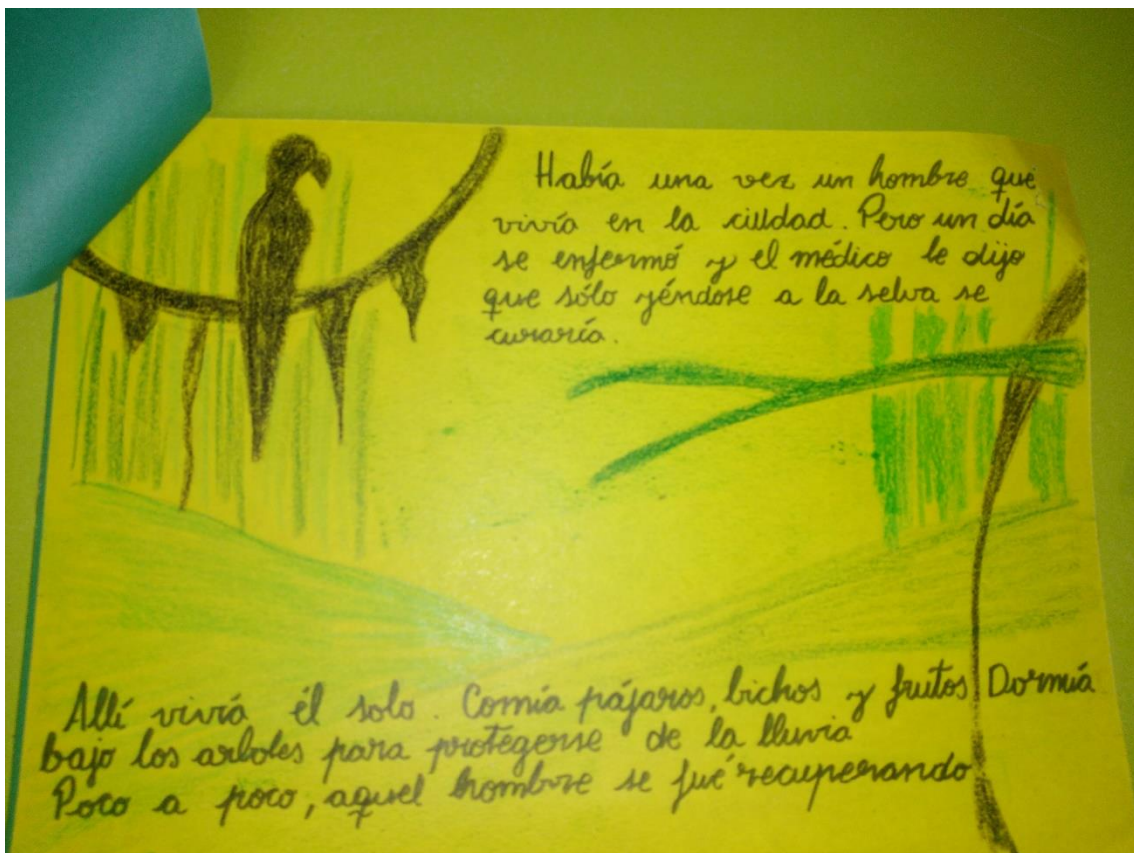 Había una vez un hombre que
vivía en la ciudad. Pero un día
se enfermó y el médico le dijo
que sólo yéndose a la selva se
curaría.
Allí vivía él solo. Comía pájaros, bichos y frutos Dormía
bajo los arboles para protegerse de la lluvia
Poco a poco, aquel hombre se fué recuperando